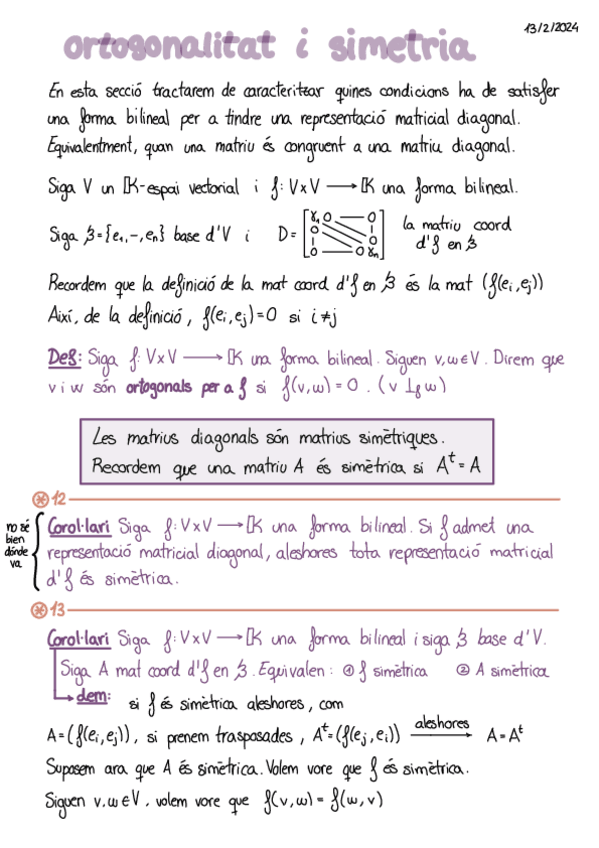 13/2/2024
ortogonalitat i simetria
En esta secció tractarem de caracteritzar quines condicions ha de satisfer
una forma bilineal per a tindre una representació matricial diagonal.
Equivalentment, quan una matriu és congruent a una matriu diagonal.
Siga V un K-espai vectorial i f: V×V → K una forma bilineal.
Siga B={e₁,-,eₙ} base d'V i D= [γ₁ 0 — 0 / 0 \ 0 / 0 — 0 γₙ] la matriu coord
d'f en B
Recordem que la definició de la mat coord d'f en B és la mat (f(eᵢ,eⱼ))
Així, de la definició, f(eᵢ,eⱼ)=0 si i≠j
Def: Siga f: V×V → K una forma bilineal. Siguen v,w∈V. Direm que
v i w són ortogonals per a f si f(v,w)=0. (v ⊥f w)
Les matrius diagonals són matrius simètriques.
Recordem que una matriu A és simètrica si Aᵗ=A
*12
no sé
bien
dónde
va
Corol·lari Siga f: V×V → K una forma bilineal. Si f admet una
representació matricial diagonal, aleshores tota representació matricial
d'f és simètrica.
*13
Corol·lari Siga f: V×V → K una forma bilineal i siga B base d'V.
Siga A mat coord d'f en B. Equivalen: ① f simètrica ② A simètrica
dem: si f és simètrica aleshores, com
A=(f(eᵢ,eⱼ)), si prenem trasposades, Aᵗ=(f(eⱼ,eᵢ)) aleshores → A=Aᵗ
Suposem ara que A és simètrica. Volem vore que f és simètrica.
Siguen v,w∈V, volem vore que f(v,w)=f(w,v)